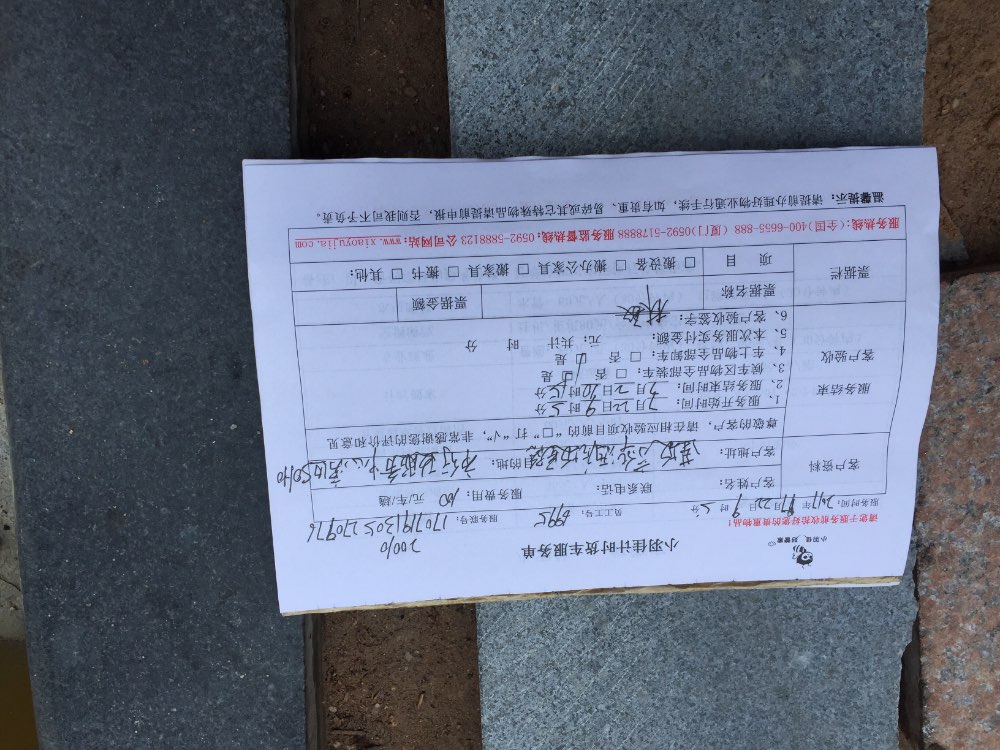 小羽佳 好管家
小羽佳计时货车服务单
20010
请您于服务前收拾好您的贵重物品!
服务时间:2017年 月22日9时 分 员工号:8995 服务账号:170719130527097
客户资料
客户姓名: 联系电话: 服务费用:160 元/车/趟
客户地址: 目的地:市行政服务中心
尊敬的客户,请在相应验收项目前的“□”打“√”,非常感谢您的评价和意见
服务结束
客户验收
1、服务开始时间:7月22日9时 分
2、服务结束时间:7月2日10时15分
3、候车区物品全部装车:□ 否 是
4、车上物品全部卸车:□ 否 是
5、本次服务实付金额: 元;共计 时 分
6、客户验收签字:林
票据栏
票据名称 票据金额
项 目 □ 搬设备 □ 搬办公家具 □ 搬家具 □ 搬书 □ 其他:
服务热线:(全国)400-6655-888 (厦门)0592-5178888 服务监督热线:0592-5888123 公司网站:www.xiaoyujia.com
温馨提示:请提前办理好物业通行手续,如有贵重、易碎或其它特殊物品请提前申报,否则我司不予负责。